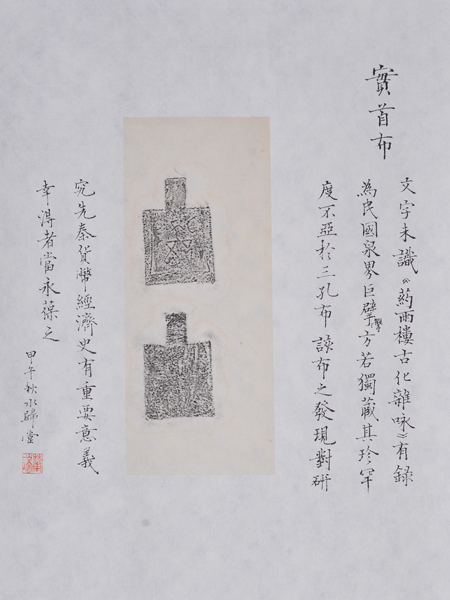 實首布
文字未識《葯雨樓古化雜咏》有錄
為民國泉界巨擘方若獨藏其珍罕
度不亞於三孔布該布之發現對研
究先秦貨幣經濟史有重要意義
幸得者當永葆之
甲午秋水歸堂